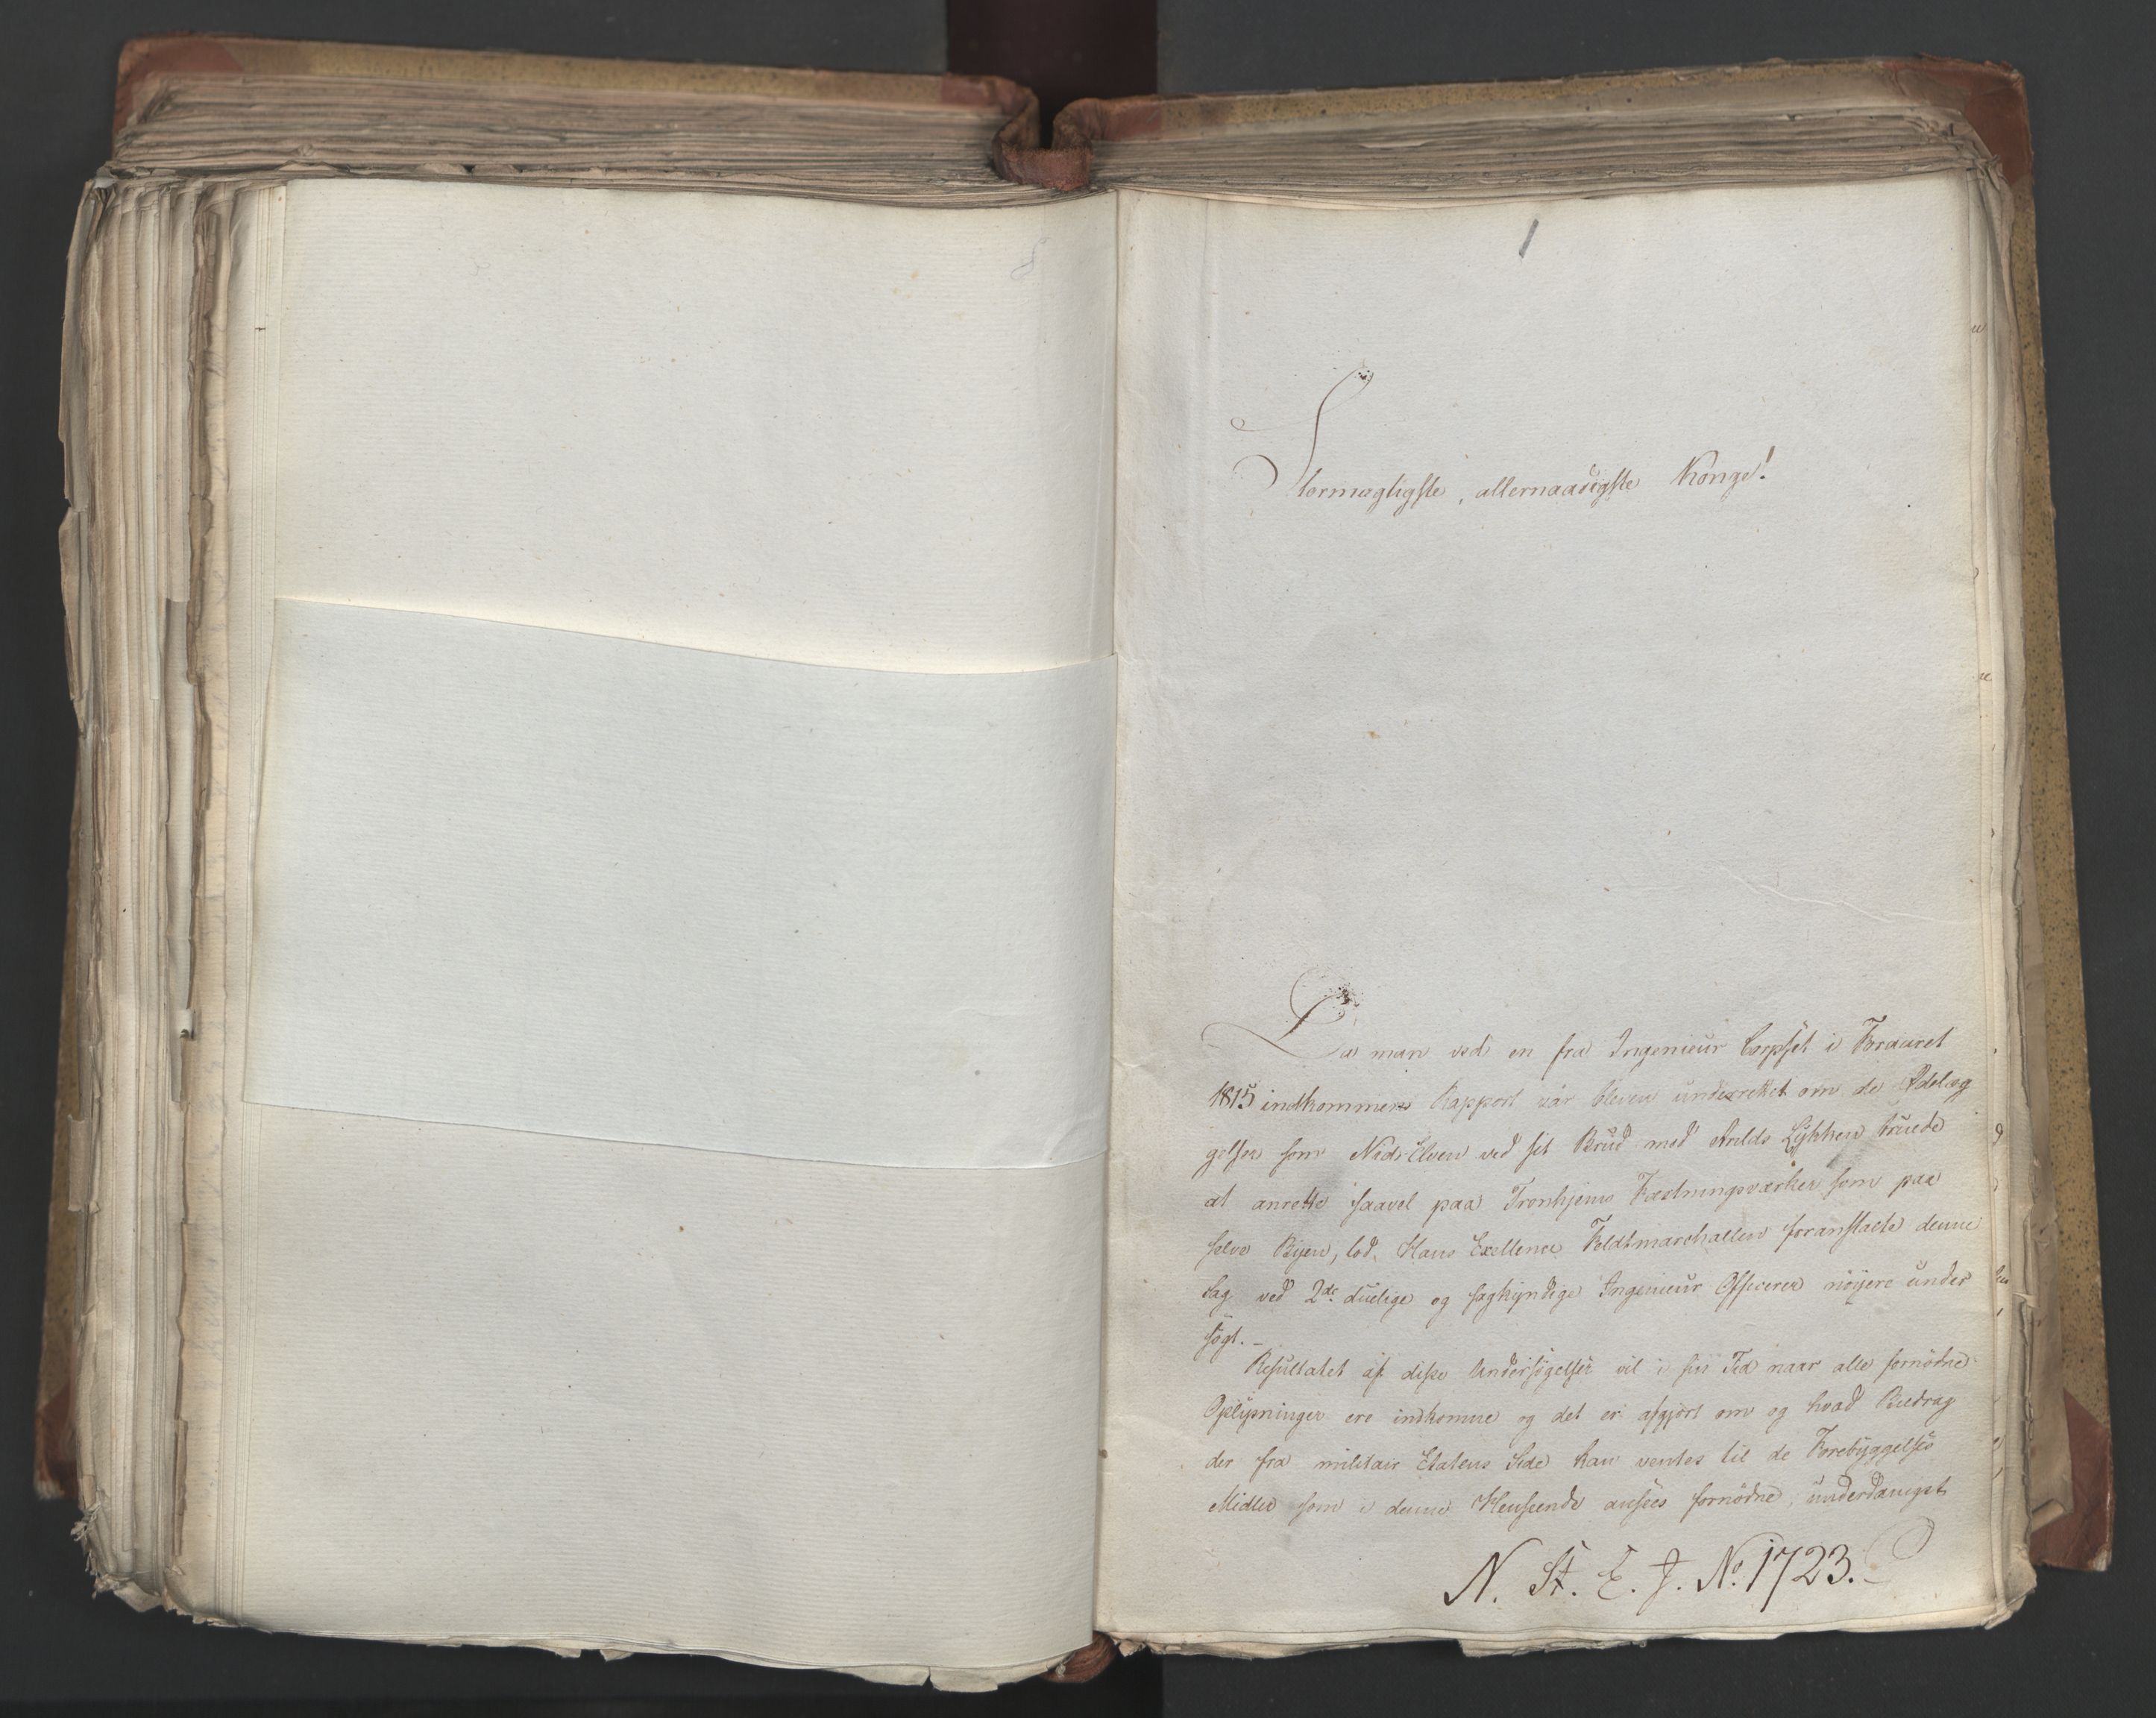 1
Stormægtigste, allernaadigste Konge!
Da man ved en fra Ingenieur Corpset i Foraaret
1815 indkommen Rapport var bleven underrettet om de Ødelæg
gelser som Nid-Elven ved sit Brud med Arilds Løkken truede
at anrette saavel paa Tronhjems Fæstningsværker som paa
selve Byen, lod Hans Exellence Feldtmarschallen foranstalte denne
Sag ved 2de duelige og sagkyndige Ingenieur Officerer nöyere under
sögt. -
Resultatet af disse Undersögelser vil i sin Tid naar alle fornödne
Oplysninger ere indkomne og det er afgjort om og hvad Bidrag
der fra militair Etatens Side kan ventes til de Forebyggelses
Midler som i denne Henseende ansees fornödne, underdanigst
N. St. E. J. No 1723.